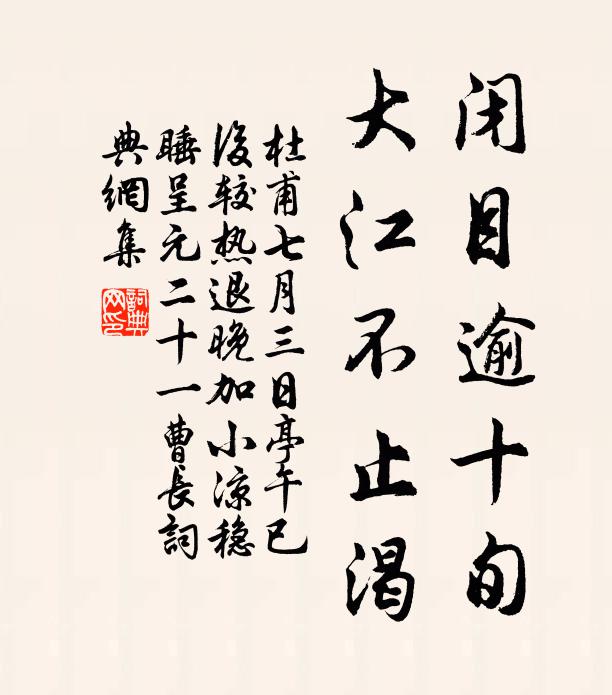 闭目逾十旬
大江不止渴
杜甫七月三日亭午已
後较热退晚加小凉稳
睡呈元二十一曹长詞
典網集
詞典
网印